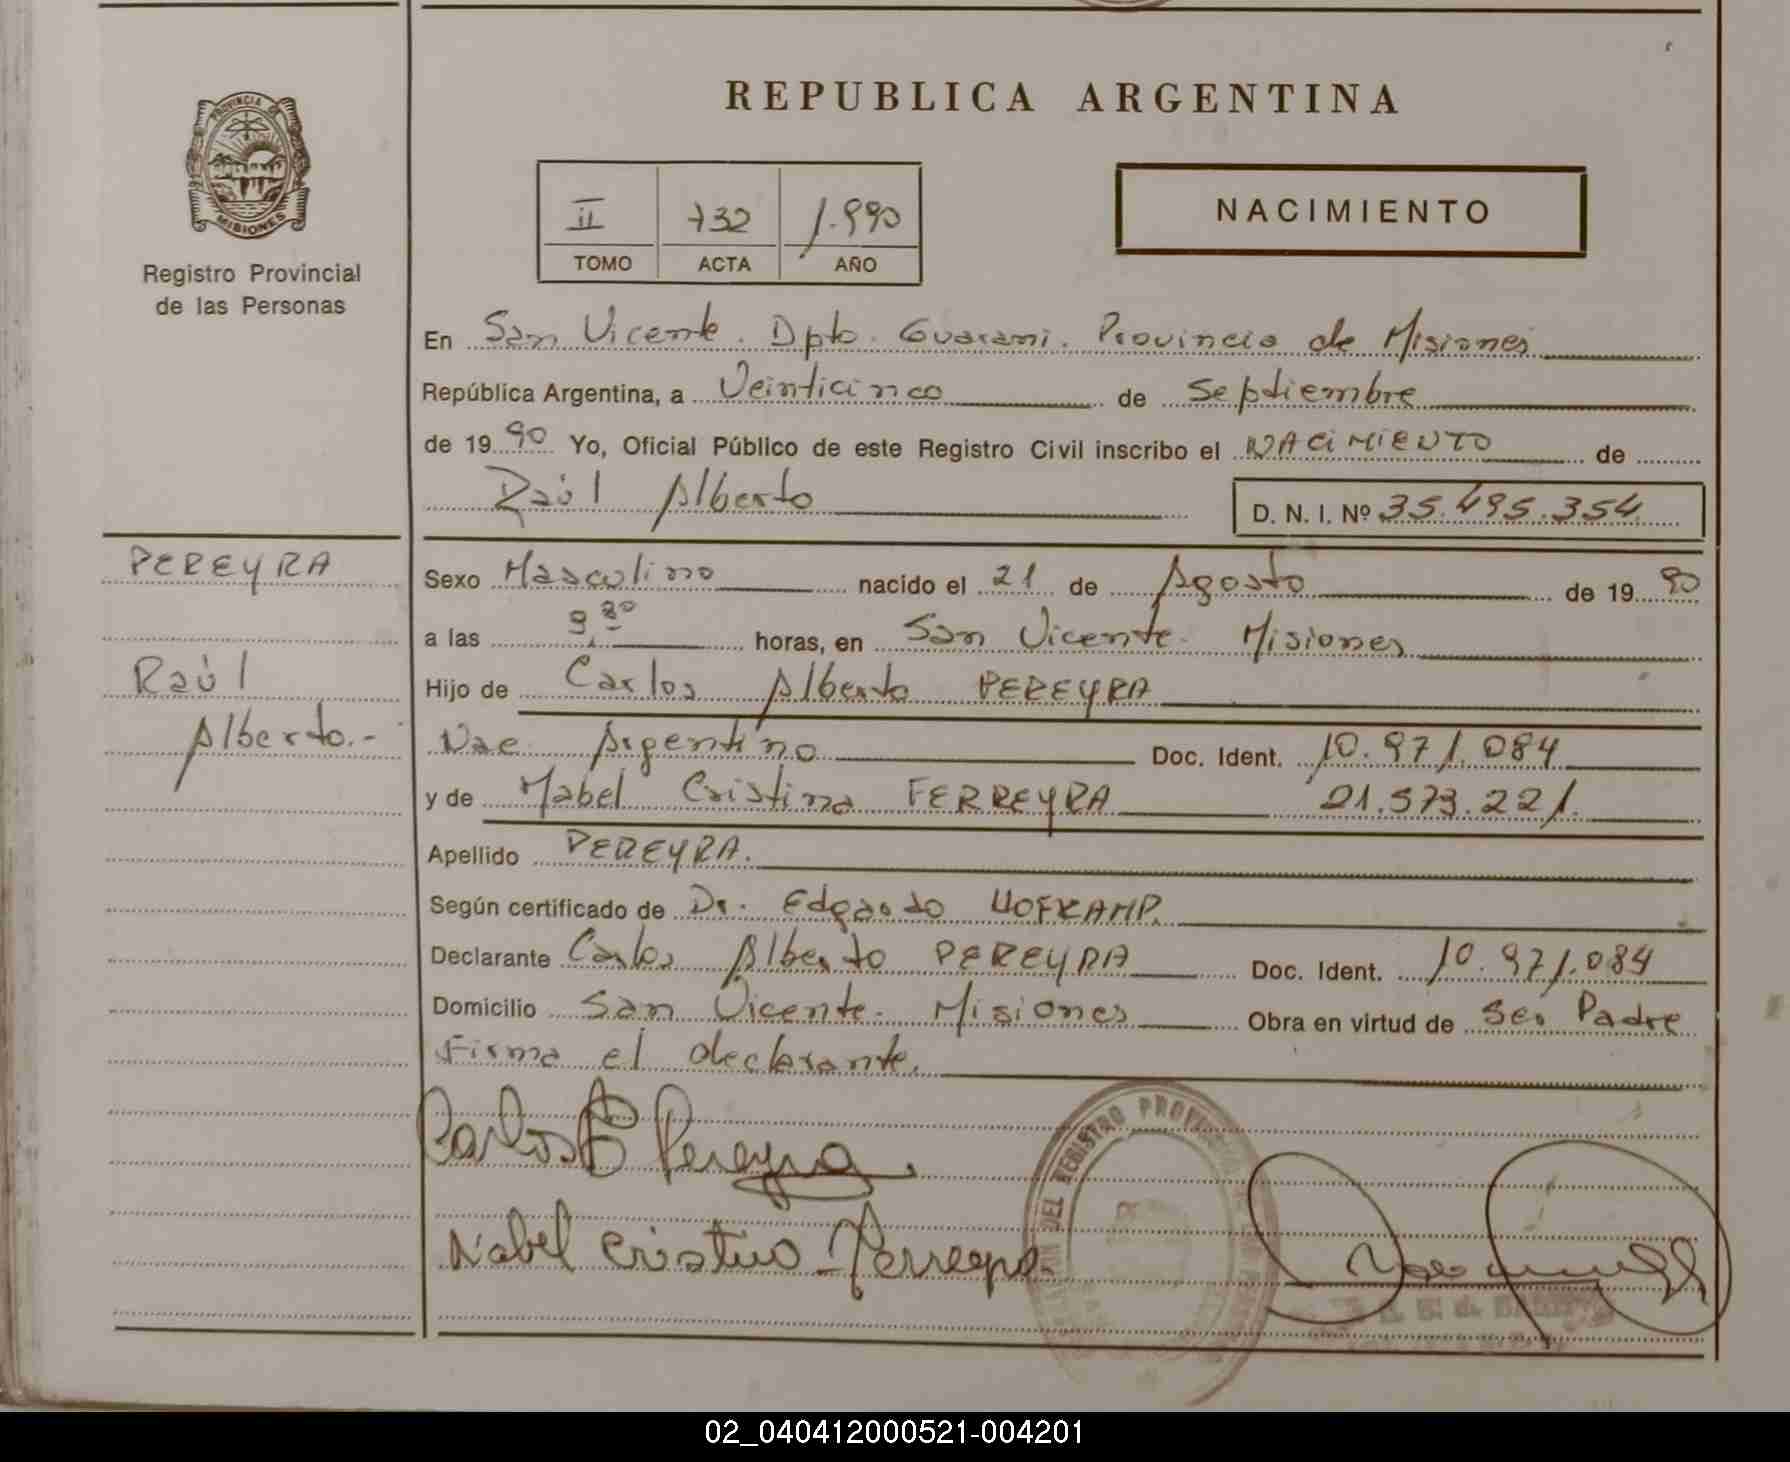 REPUBLICA ARGENTINA
PROVINCIA DE
MISIONES
Registro Provincial
de las Personas
II 732 1.990
TOMO ACTA AÑO
NACIMIENTO
En San Vicente. Dpto. Guarani. Provincia de Misiones
República Argentina, a Veinticinco de Septiembre
de 1990 Yo, Oficial Público de este Registro Civil inscribo el NACIMIENTO de
Raúl Alberto
D. N. I. Nº 35.495.354
PEREYRA
Raúl
Alberto.-
Sexo Masculino nacido el 21 de Agosto de 1990
a las horas, en San Vicente. Misiones
Hijo de Carlos Alberto PEREYRA
Nac. Argentino Doc. Ident. 10.971.084
y de Mabel Cristina FERREYRA 21.573.221.
Apellido PEREYRA.
Según certificado de Dr. Edgardo HOFKAMP.
Declarante Carlos Alberto PEREYRA Doc. Ident. 10.971.084
Domicilio San Vicente. Misiones Obra en virtud de Ser Padre
Firma el declarante.
Carlos A Pereyra
Mabel Cristina Ferreyra
DEL REGISTRO PROVINCIAL DE LAS
02_040412000521-004201